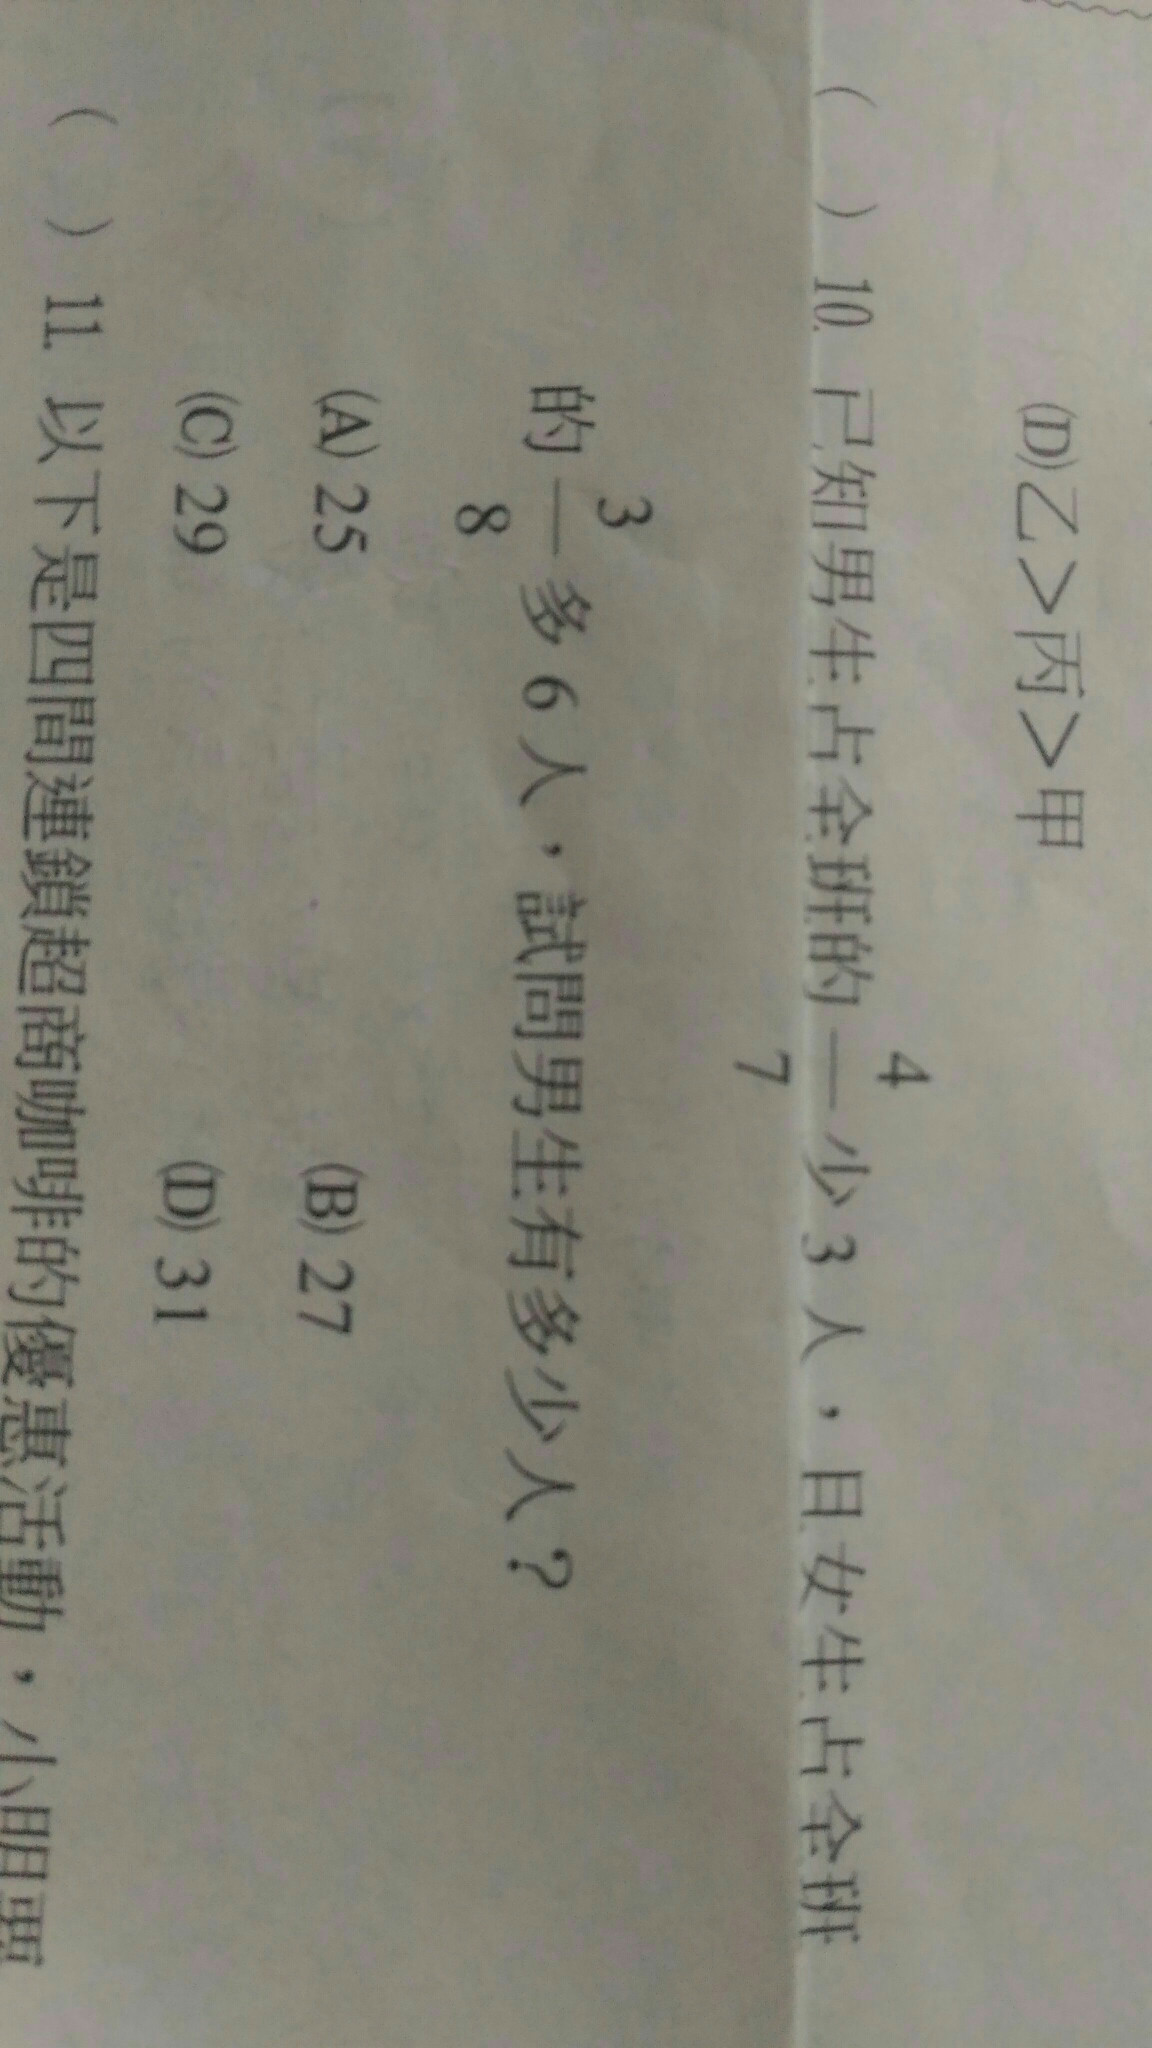 (D)乙>丙>甲
( ) 10. 已知男生占全班的 4/7 少 3 人，且女生占全班
的 3/8 多 6 人，試問男生有多少人？
(A) 25 (B) 27
(C) 29 (D) 31
( ) 11. 以下是四間連鎖超商咖啡的優惠活動，小明要